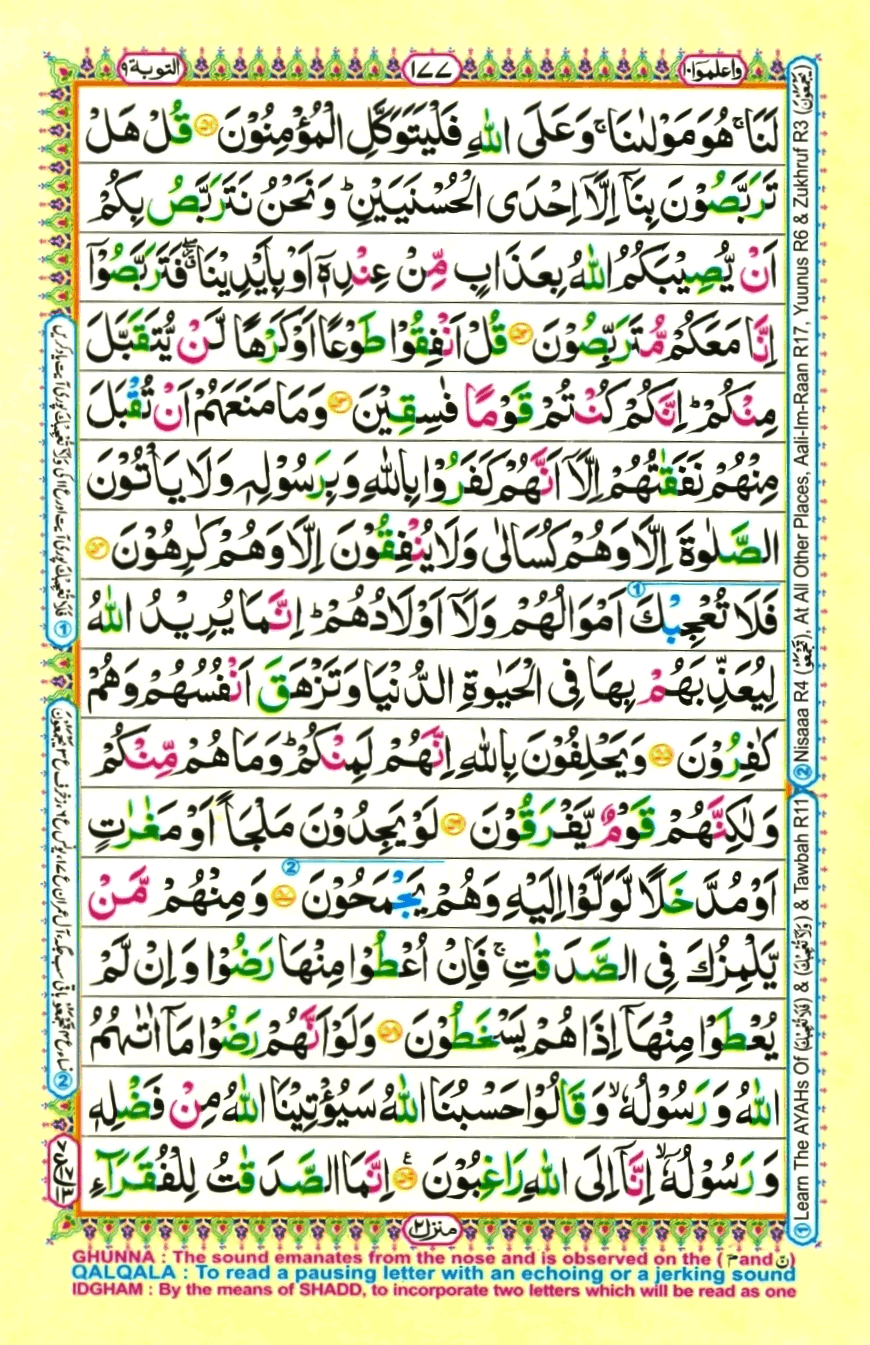 واعلموا ١٠
١٧٧
التوبة ٩
لَنَا ۚ هُوَ مَوْلٰىنَا ۚ وَعَلَى اللّٰهِ فَلْيَتَوَكَّلِ الْمُؤْمِنُوْنَ ۝۵۱ قُلْ هَلْ
تَرَبَّصُوْنَ بِنَاۤ اِلَّاۤ اِحْدَى الْحُسْنَيَيْنِ ؕ وَنَحْنُ نَتَرَبَّصُ بِكُمْ
اَنْ يُّصِيْبَكُمُ اللّٰهُ بِعَذَابٍ مِّنْ عِنْدِهٖۤ اَوْ بِاَيْدِيْنَا ۖؗ فَتَرَبَّصُوْۤا
اِنَّا مَعَكُمْ مُّتَرَبِّصُوْنَ ۝۵۲ قُلْ اَنْفِقُوْا طَوْعًا اَوْ كَرْهًا لَّنْ يُّتَقَبَّلَ
مِنْكُمْ ؕ اِنَّكُمْ كُنْتُمْ قَوْمًا فٰسِقِيْنَ ۝۵۳ وَمَا مَنَعَهُمْ اَنْ تُقْبَلَ
مِنْهُمْ نَفَقٰتُهُمْ اِلَّاۤ اَنَّهُمْ كَفَرُوْا بِاللّٰهِ وَبِرَسُوْلِهٖ وَلَا يَاْتُوْنَ
الصَّلٰوةَ اِلَّا وَهُمْ كُسَالٰى وَلَا يُنْفِقُوْنَ اِلَّا وَهُمْ كٰرِهُوْنَ ۝۵۴
فَلَا تُعْجِبْكَ اَمْوَالُهُمْ وَلَاۤ اَوْلَادُهُمْ ؕ اِنَّمَا يُرِيْدُ اللّٰهُ
لِيُعَذِّبَهُمْ بِهَا فِى الْحَيٰوةِ الدُّنْيَا وَتَزْهَقَ اَنْفُسُهُمْ وَهُمْ
كٰفِرُوْنَ ۝۵۵ وَيَحْلِفُوْنَ بِاللّٰهِ اِنَّهُمْ لَمِنْكُمْ ؕ وَمَا هُمْ مِّنْكُمْ
وَلٰكِنَّهُمْ قَوْمٌ يَّفْرَقُوْنَ ۝۵۶ لَوْ يَجِدُوْنَ مَلْجَاً اَوْ مَغٰرٰتٍ
اَوْ مُدَّخَلًا لَّوَلَّوْا اِلَيْهِ وَهُمْ يَجْمَحُوْنَ ۝۵۷ وَمِنْهُمْ مَّنْ
يَّلْمِزُكَ فِى الصَّدَقٰتِ ۚ فَاِنْ اُعْطُوْا مِنْهَا رَضُوْا وَاِنْ لَّمْ
يُعْطَوْا مِنْهَاۤ اِذَا هُمْ يَسْخَطُوْنَ ۝۵۸ وَلَوْ اَنَّهُمْ رَضُوْا مَاۤ اٰتٰىهُمُ
اللّٰهُ وَرَسُوْلُهٗ ۙ وَقَالُوْا حَسْبُنَا اللّٰهُ سَيُؤْتِيْنَا اللّٰهُ مِنْ فَضْلِهٖ
وَرَسُوْلُهٗۤ ۙ اِنَّاۤ اِلَى اللّٰهِ رَاغِبُوْنَ ۝۵۹ اِنَّمَا الصَّدَقٰتُ لِلْفُقَرَآءِ
منزل ٢
① Learn The AYAHs Of (فَلَا تُعْجِبْكَ) & (وَلَا تُعْجِبْكَ) & Tawbah R11
② Nisaaa R4 At All Other Places, Aali-Im-Raan R17, Yuunus R6 & Zukhruf R3 (يَجْمَعُوْنَ)
GHUNNA : The sound emanates from the nose and is observed on the (م and ن)
QALQALA : To read a pausing letter with an echoing or a jerking sound
IDGHAM : By the means of SHADD, to incorporate two letters which will be read as one